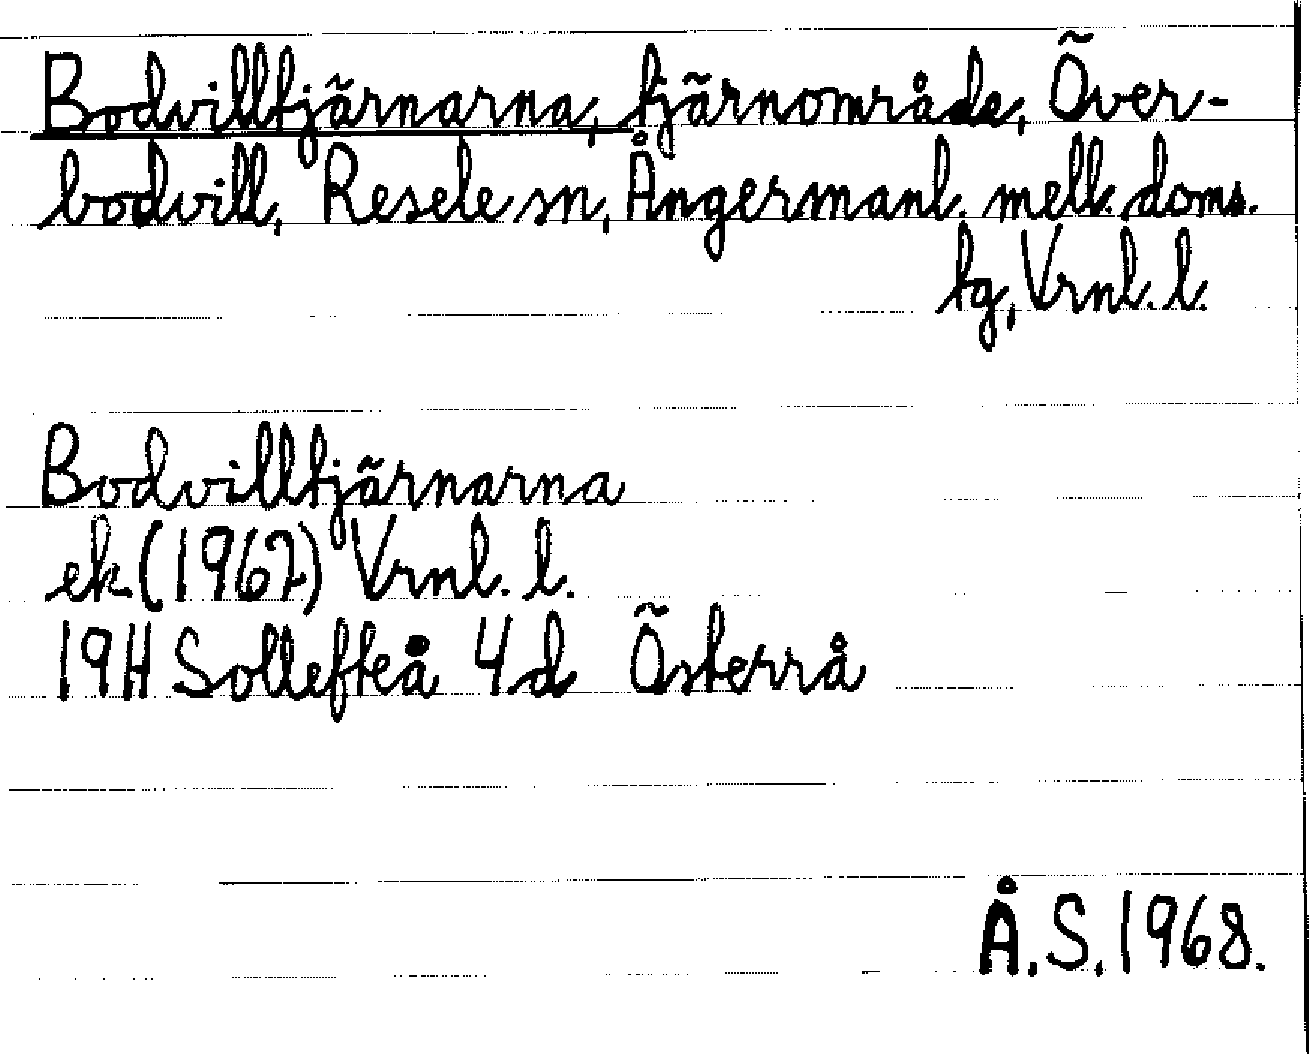 Bodvilltjärnarna, tjärnområde, Över-
bodvill, Resele sn, Ångermanl. mell. doms.
lg, Vrnl. l.
Bodvilltjärnarna
ek (1967) Vrnl. l.
19H Sollefteå 4d Österrå
Å.S. 1968.